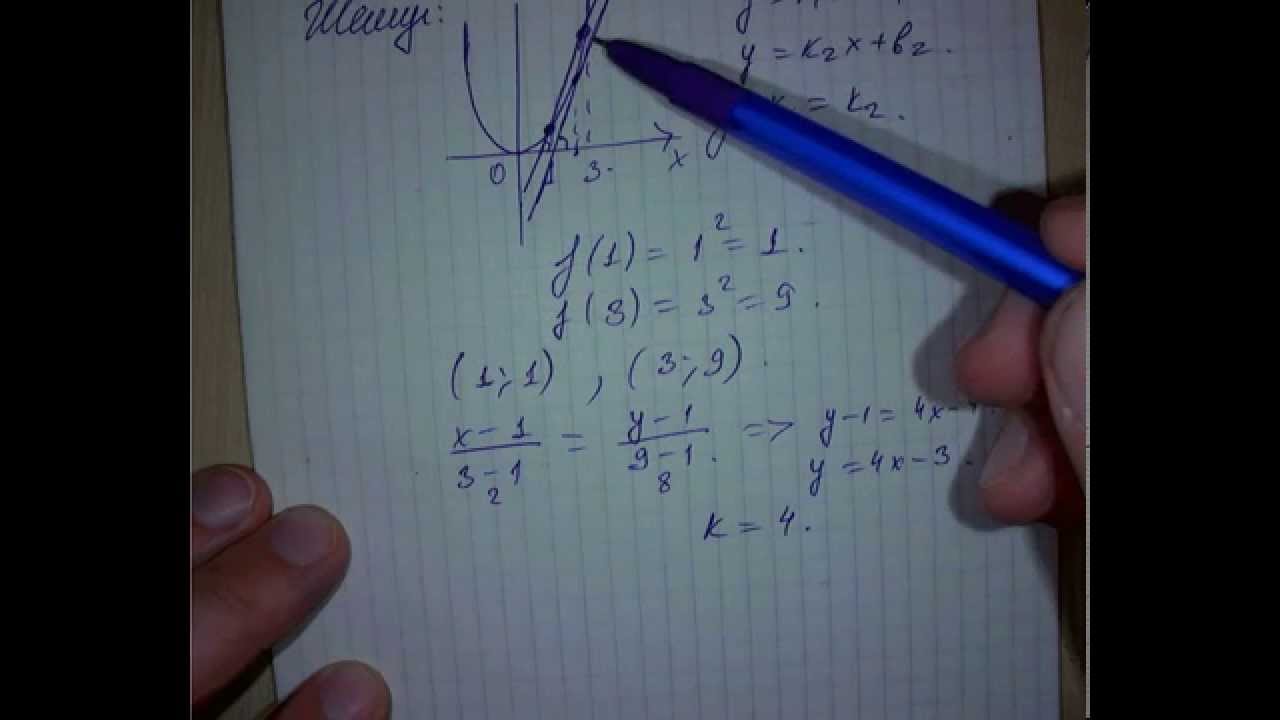 Шешуі:
y = k₂x + b₂.
= k₂.
0 1 3. x
f(1) = 1² = 1.
f(3) = 3² = 9.
(1; 1) , (3; 9).
x – 1 / 3 – 1 = y – 1 / 9 – 1. => y – 1 = 4x –
2 8 y = 4x – 3.
k = 4.